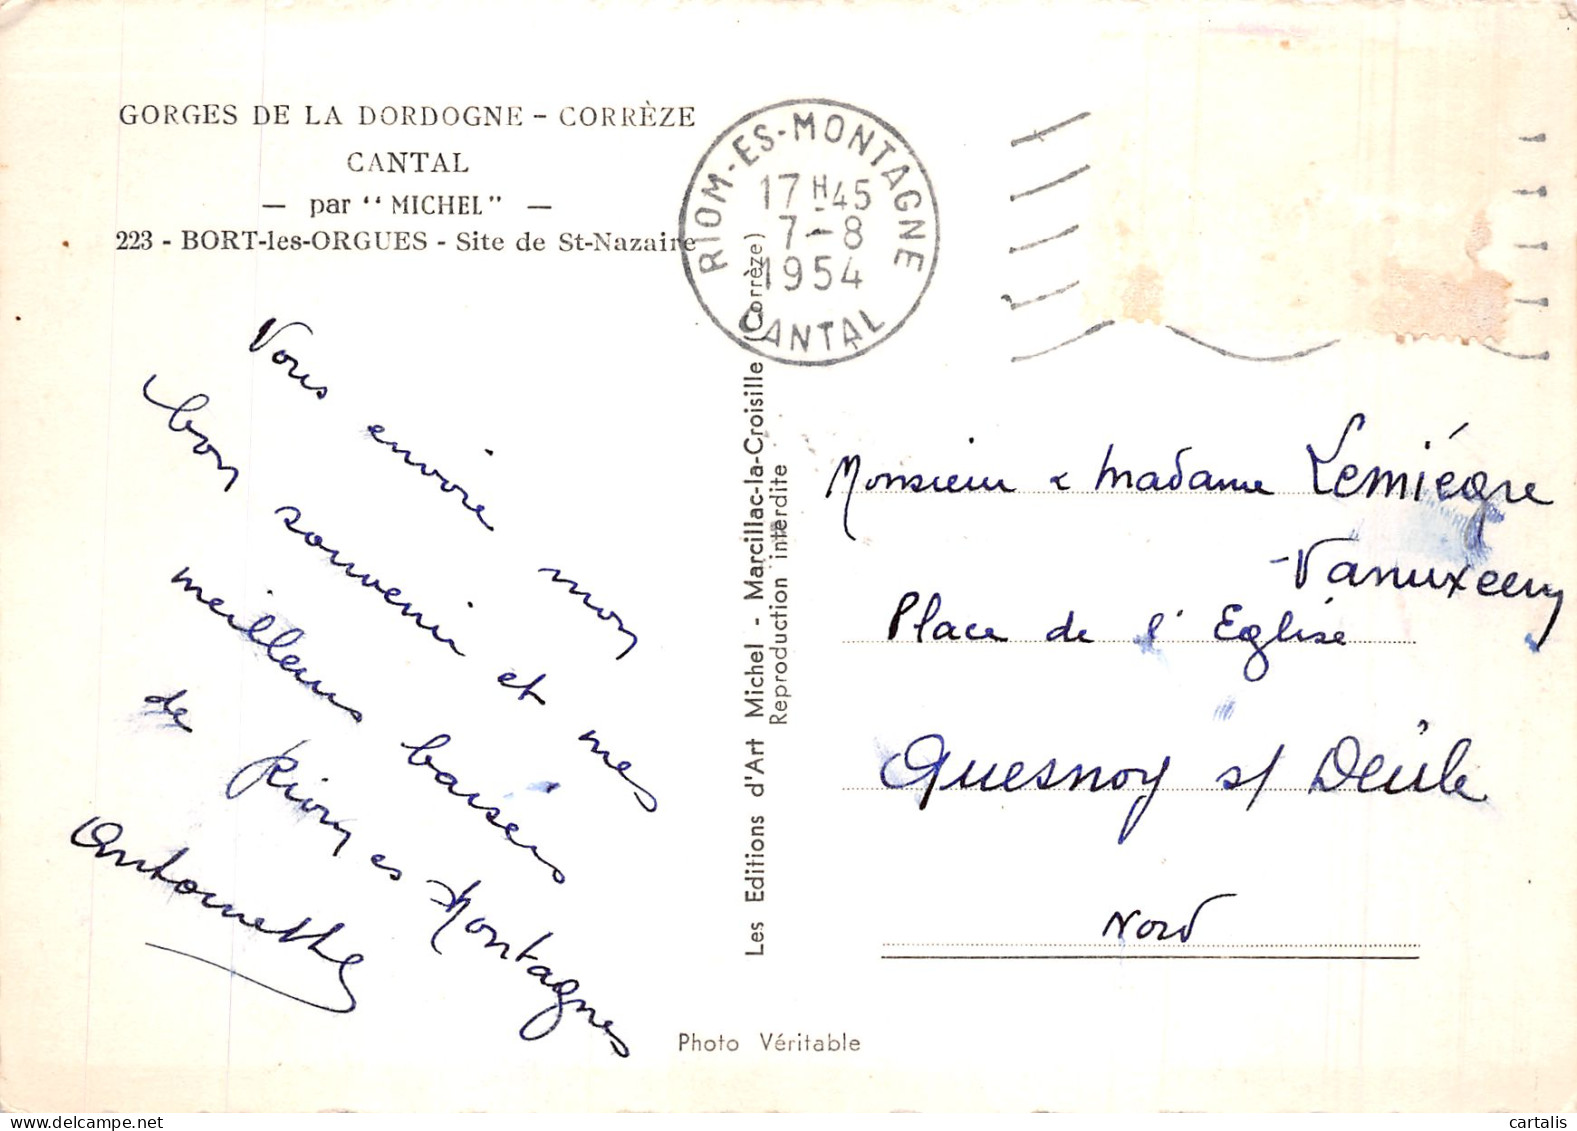 GORGES DE LA DORDOGNE - CORRÈZE
CANTAL
— par “MICHEL” —
223 - BORT-les-ORGUES - Site de St-Nazaire
RIOM-ES-MONTAGNE
17 H 45
7-8
1954
CANTAL
Vous envoie mon
bon souvenir et mes
meilleurs baisers
de Riom es Montagnes
Antoinette
Les Editions d'Art Michel - Marcillac-la-Croisille (Corrèze)
Reproduction interdite
Monsieur & Madame Lemiègre
Place de l'Eglise
Quesnoy s/ Deûle
Nord
Photo Véritable
cartalis
delcampe.net